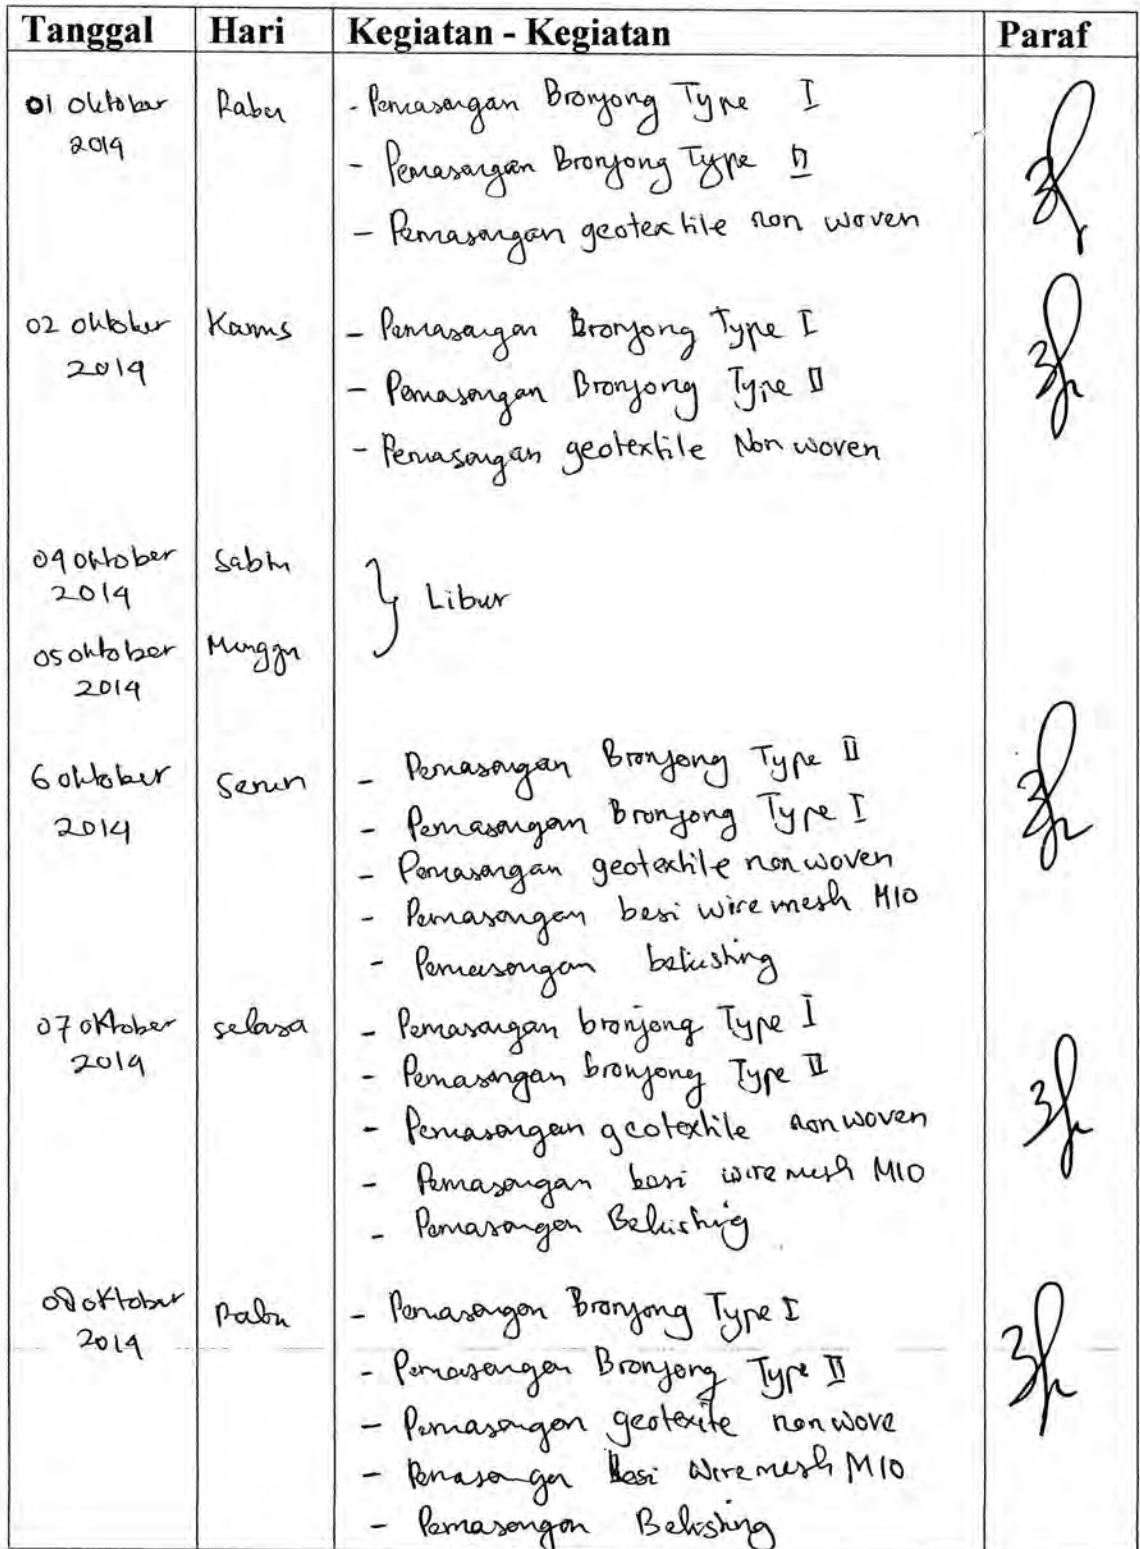 Tanggal Hari Kegiatan - Kegiatan Paraf
01 Oktober Rabu - Pemasangan Bronjong Type I
2014
- Pemasangan Bronjong Type II
- Pemasangan geotextile non woven
02 Oktober Kamis - Pemasangan Bronjong Type I
2014
- Pemasangan Bronjong Type II
- Pemasangan geotextile Non woven
04 Oktober Sabtu
2014
} Libur
05 Oktober Minggu
2014
6 Oktober Senin - Pemasangan Bronjong Type II
2014
- Pemasangan Bronjong Type I
- Pemasangan geotextile non woven
- Pemasangan besi wire mesh M10
- Pemasangan bekisting
07 Oktober selasa - Pemasangan bronjong Type I
2014
- Pemasangan bronjong Type II
- Pemasangan geotextile non woven
- Pemasangan besi wire mesh M10
- Pemasangan Bekisting
08 Oktober Rabu - Pemasangan Bronjong Type I
2014
- Pemasangan Bronjong Type II
- Pemasangan geotexite non wove
- Pemasanga besi Wire mesh M10
- Pemasangan Bekisting